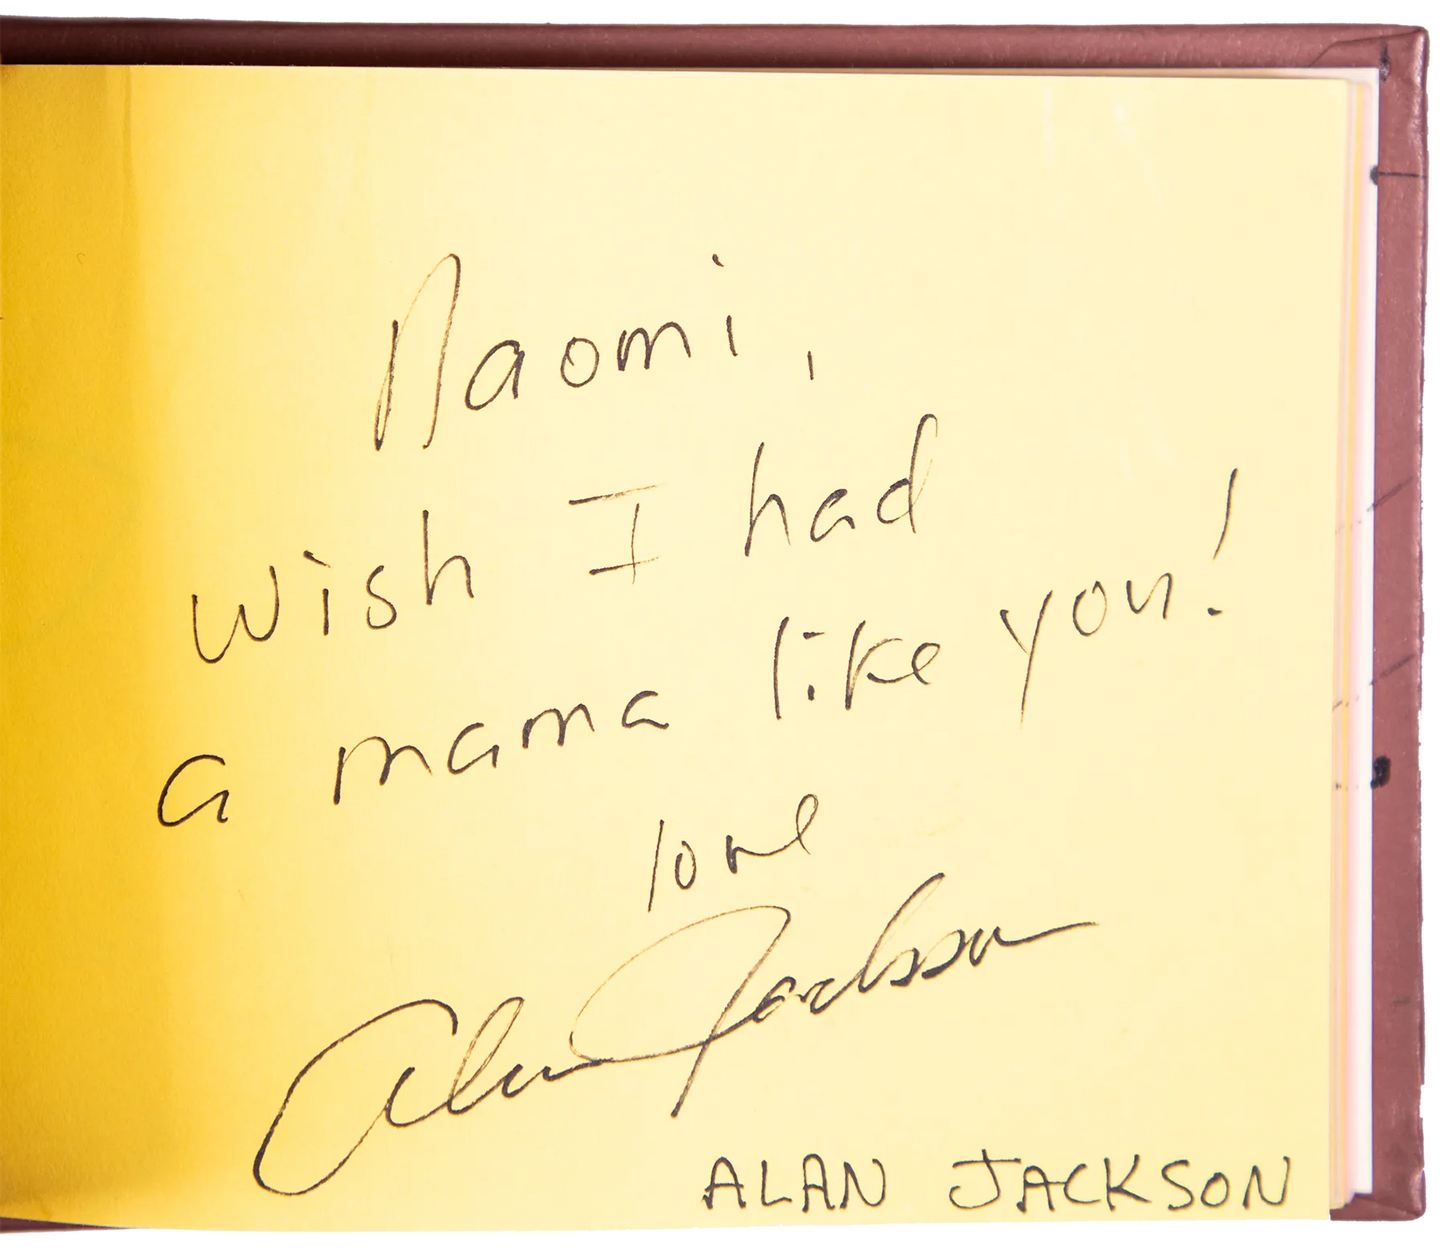 Naomi,
Wish I had
a mama like you!
love
Alan Jackson
ALAN JACKSON